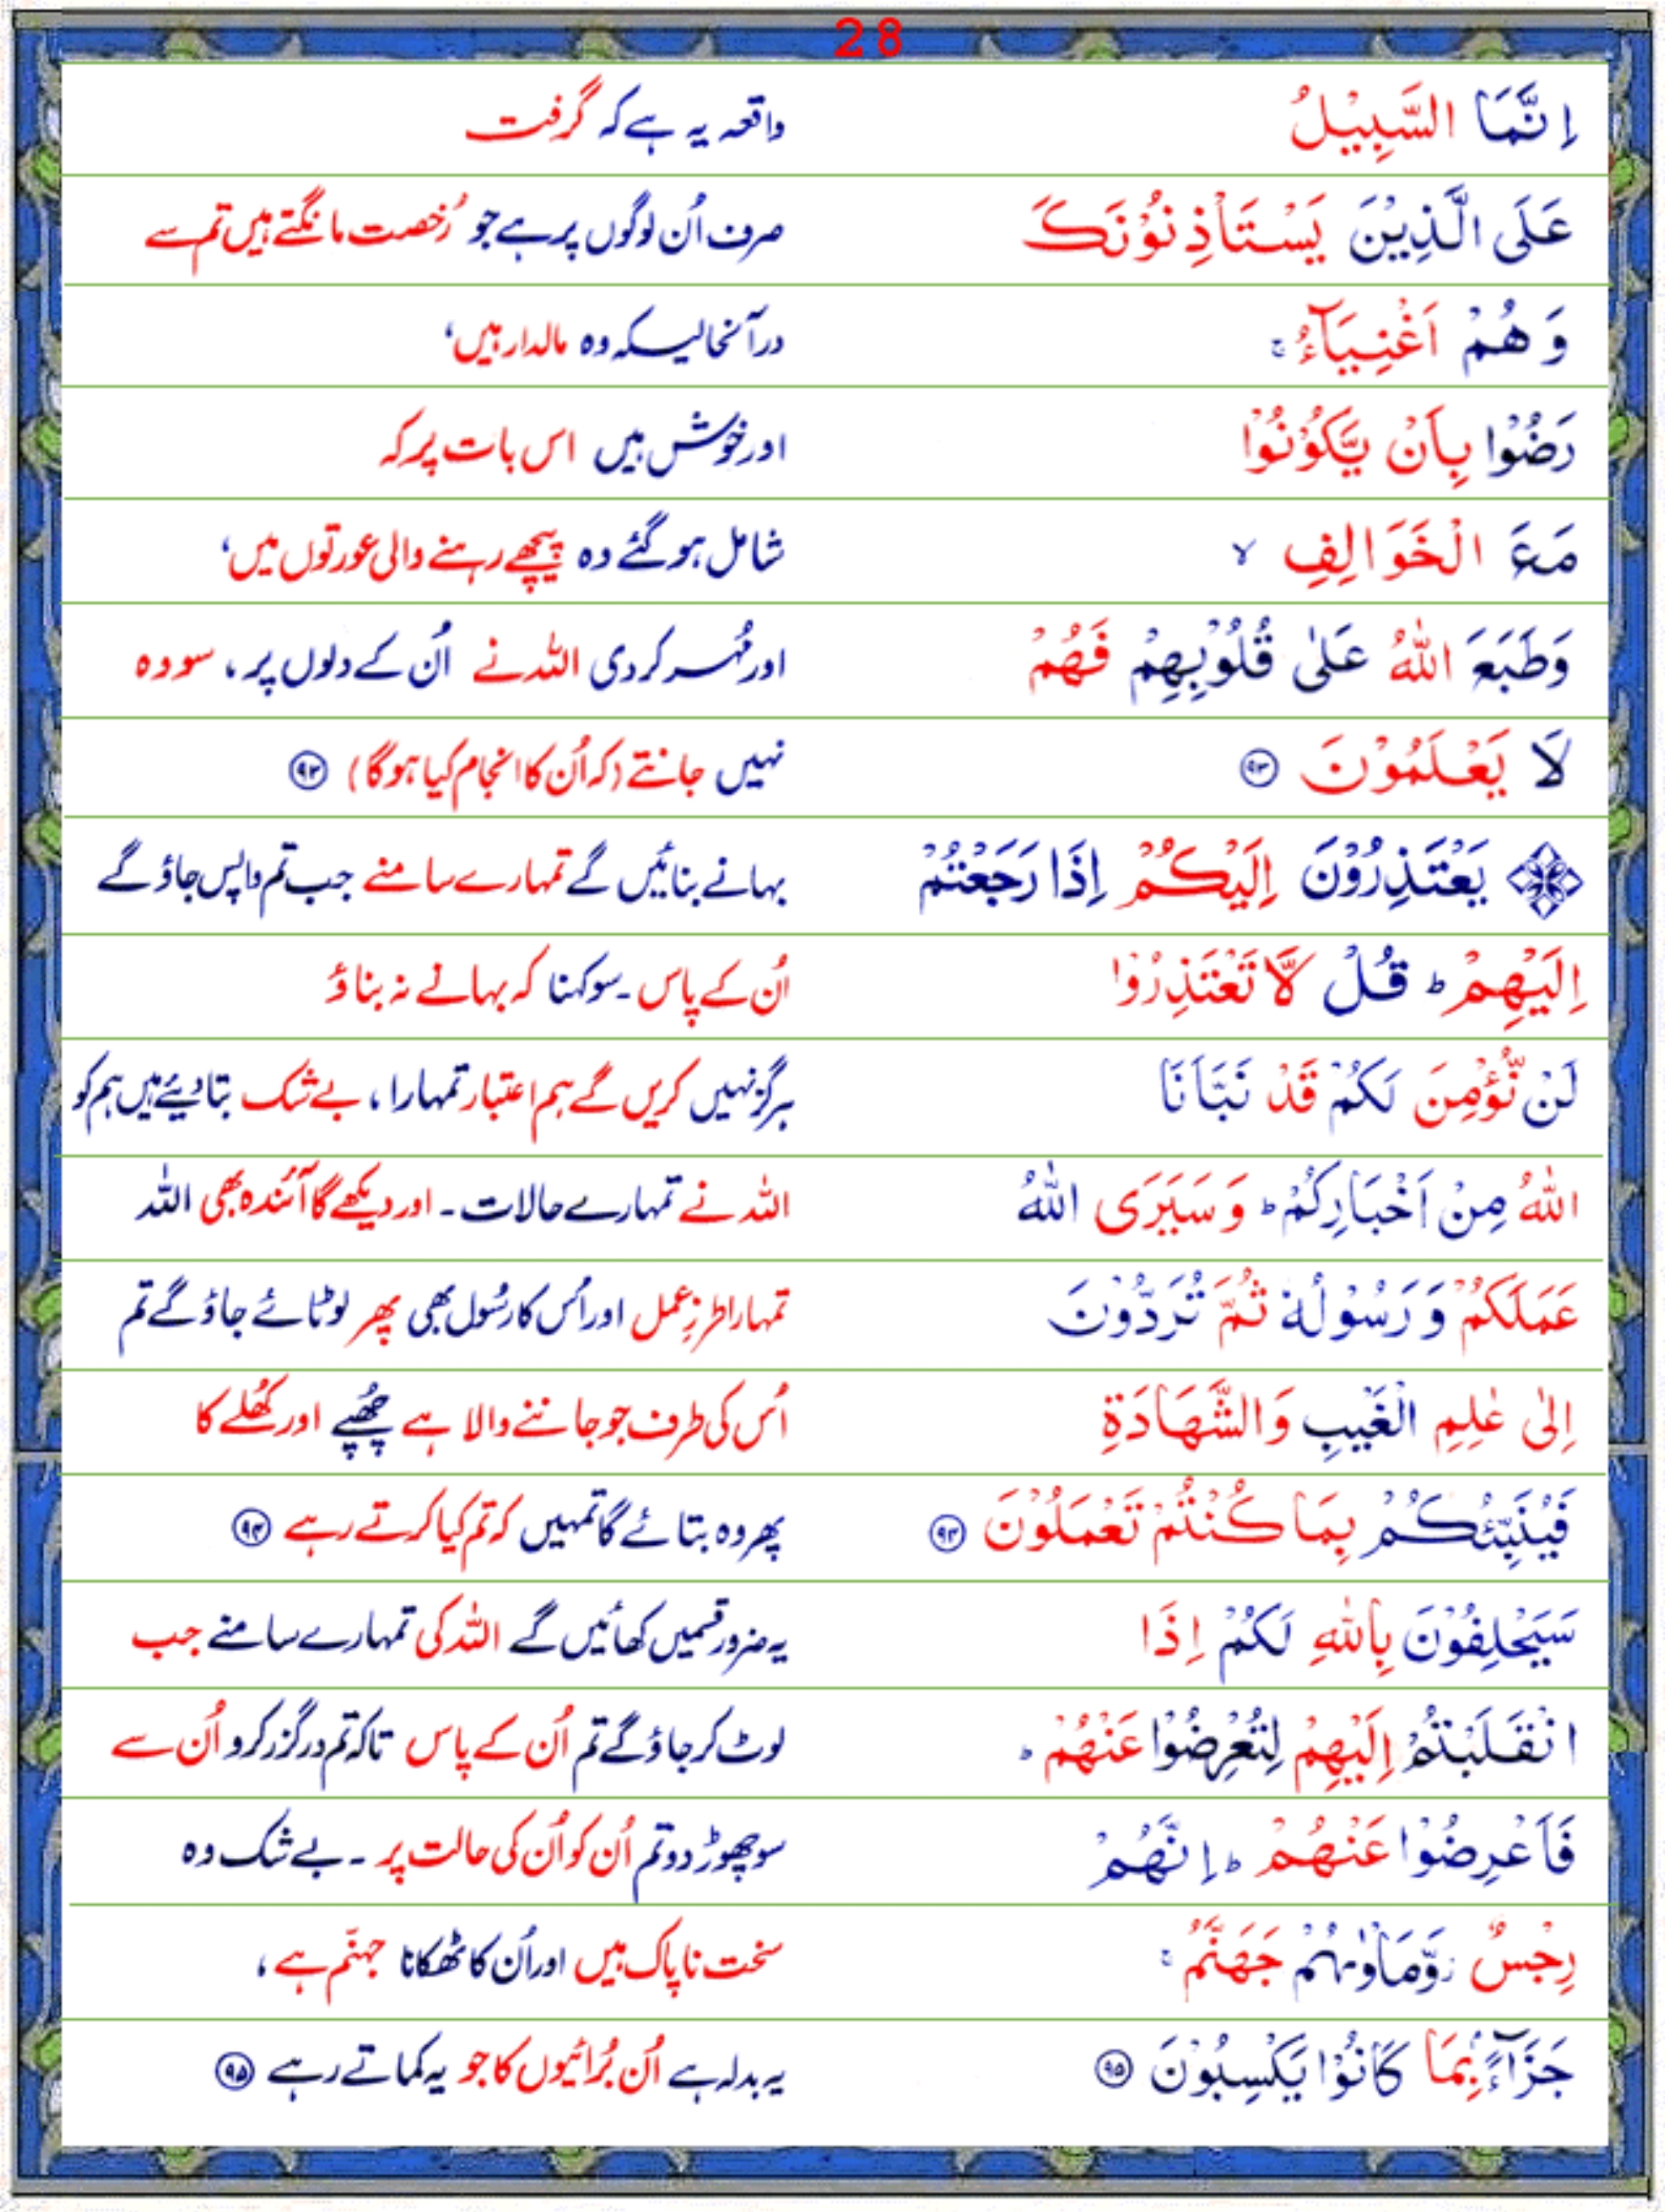 28
اِنَّمَا السَّبِيْلُ واقعہ یہ ہے کہ گرفت
عَلَى الَّذِيْنَ يَسْتَاْذِنُوْنَكَ صرف اُن لوگوں پر ہے جو رُخصت مانگتے ہیں تم سے
وَهُمْ اَغْنِيَآءُ ۚ درآنحالیکہ وہ مالدار ہیں،
رَضُوْا بِاَنْ يَّكُوْنُوْا اور خوش ہیں اس بات پر کہ
مَعَ الْخَوَالِفِ ۙ شامل ہو گئے وہ پیچھے رہنے والی عورتوں میں،
وَطَبَعَ اللّٰهُ عَلٰى قُلُوْبِهِمْ فَهُمْ اور مُہر کر دی اللہ نے اُن کے دلوں پر، سو وہ
لَا يَعْلَمُوْنَ ۹۳ نہیں جانتے (کہ اُن کا انجام کیا ہو گا) ۹۳
يَعْتَذِرُوْنَ اِلَيْكُمْ اِذَا رَجَعْتُمْ بہانے بنائیں گے تمہارے سامنے جب تم واپس جاؤ گے
اِلَيْهِمْ ؕ قُلْ لَّا تَعْتَذِرُوْا اُن کے پاس ۔سو کہنا کہ بہانے نہ بناؤ
لَنْ نُّؤْمِنَ لَكُمْ قَدْ نَبَّاَنَا ہرگز نہیں کریں گے ہم اعتبار تمہارا، بے شک بتا دیئے ہیں ہم کو
اللّٰهُ مِنْ اَخْبَارِكُمْ ؕ وَسَيَرَى اللّٰهُ اللہ نے تمہارے حالات۔ اور دیکھے گا آئندہ بھی اللہ
عَمَلَكُمْ وَرَسُوْلُهٗ ثُمَّ تُرَدُّوْنَ تمہارا طرزِ عمل اور اُس کا رسُول بھی پھر لوٹائے جاؤ گے تم
اِلٰى عٰلِمِ الْغَيْبِ وَالشَّهَادَةِ اُس کی طرف جو جاننے والا ہے چُھپے اور کُھلے کا
فَيُنَبِّئُكُمْ بِمَا كُنْتُمْ تَعْمَلُوْنَ ۹۴ پھر وہ بتائے گا تمہیں کہ تم کیا کرتے رہے ۹۴
سَيَحْلِفُوْنَ بِاللّٰهِ لَكُمْ اِذَا یہ ضرور قسمیں کھائیں گے اللہ کی تمہارے سامنے جب
انْقَلَبْتُمْ اِلَيْهِمْ لِتُعْرِضُوْا عَنْهُمْ ؕ لوٹ کر جاؤ گے تم اُن کے پاس تاکہ تم درگزر کرو اُن سے
فَاَعْرِضُوْا عَنْهُمْ ؕ اِنَّهُمْ سو چھوڑ دو تم اُن کو اُن کی حالت پر ۔ بے شک وہ
رِجْسٌ وَّمَاْوٰىهُمْ جَهَنَّمُ ۚ سخت ناپاک ہیں اور اُن کا ٹھکانا جہنّم ہے،
جَزَآءًۢ بِمَا كَانُوْا يَكْسِبُوْنَ ۹۵ یہ بدلہ ہے اُن بُرائیوں کا جو یہ کماتے رہے ۹۵